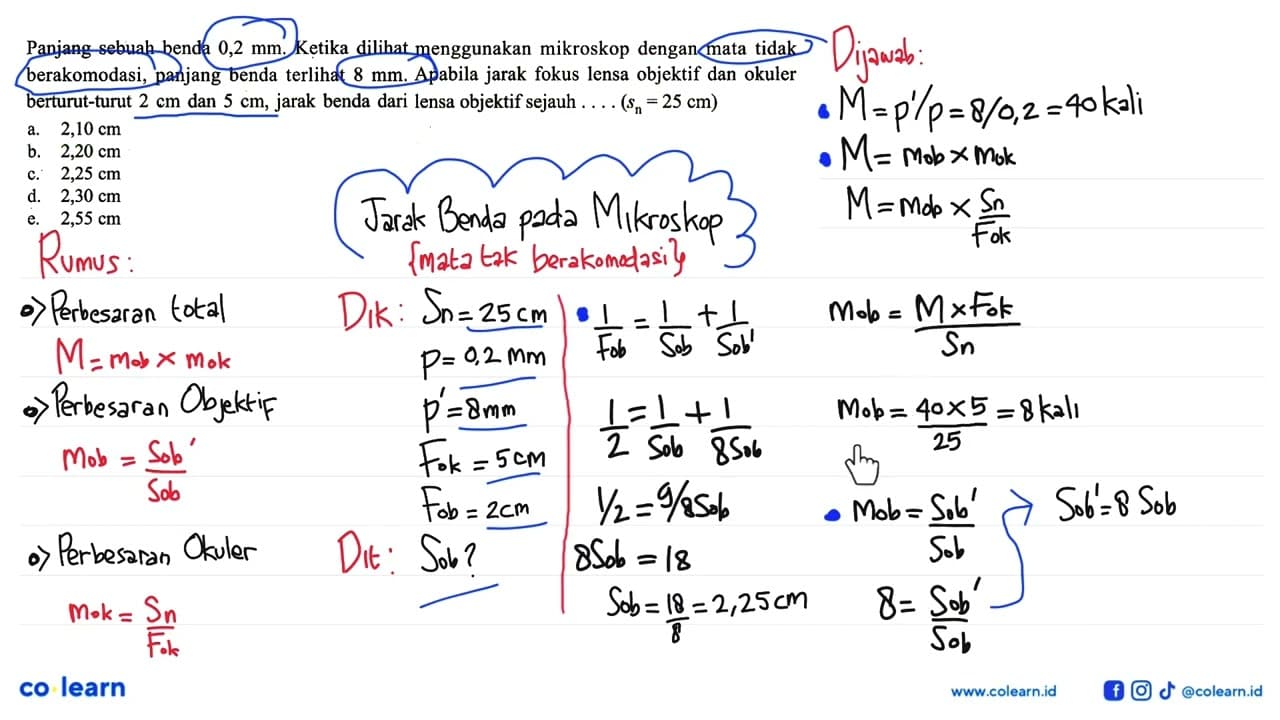 Panjang sebuah benda 0,2 mm. Ketika dilihat menggunakan mikroskop dengan mata tidak
berakomodasi, panjang benda terlihat 8 mm. Apabila jarak fokus lensa objektif dan okuler
berturut-turut 2 cm dan 5 cm, jarak benda dari lensa objektif sejauh . . . . (sₙ = 25 cm)
a. 2,10 cm
b. 2,20 cm
c. 2,25 cm
d. 2,30 cm
e. 2,55 cm
Jarak Benda pada Mikroskop
{mata tak berakomodasi}
Rumus:
Perbesaran total
M = Mob × Mok
Perbesaran Objektif
Mob = Sob'/Sob
Perbesaran Okuler
Mok = Sn/Fok
Dik: Sn = 25 cm
p = 0,2 mm
p' = 8 mm
Fok = 5 cm
Fob = 2 cm
Dit: Sob?
1/Fob = 1/Sob + 1/Sob'
1/2 = 1/Sob + 1/8Sob
1/2 = 9/8Sob
8Sob = 18
Sob = 18/8 = 2,25 cm
Dijawab:
M = p'/p = 8/0,2 = 40 kali
M = Mob × Mok
M = Mob × Sn/Fok
Mob = M × Fok/Sn
Mob = 40 × 5/25 = 8 kali
Mob = Sob'/Sob
8 = Sob'/Sob
Sob' = 8 Sob
co learn
www.colearn.id
@colearn.id